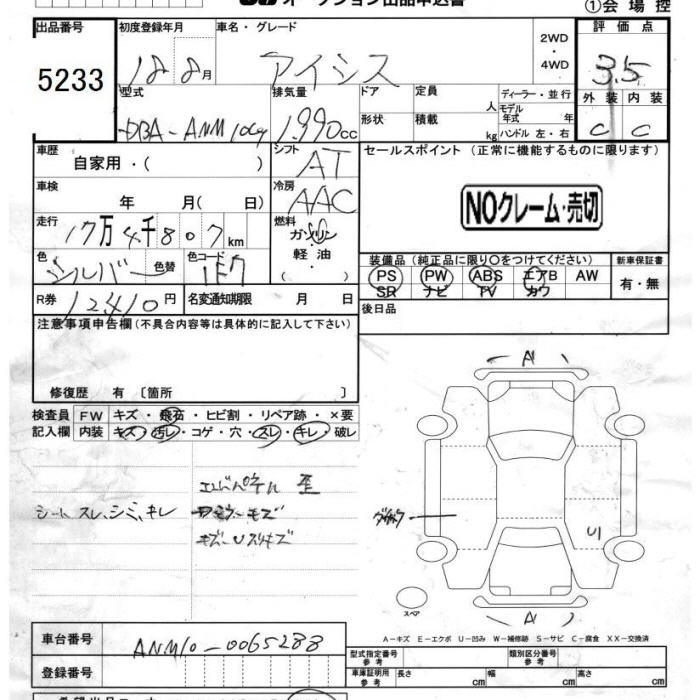 オークション出品申込書
①会場控
出品番号
初度登録年月
車名・グレード
2WD・4WD
評価点
5233
18 8月
アイシス
3.5
型式
排気量
ドア
定員
人
ディーラー・並行
モデル年式 年
外装 内装
DBA-ANM10G
1,990cc
形状
積載
kg
ハンドル 左・右
C C
車歴
自家用・( )
シフト
AT
セールスポイント (正常に機能するものに限ります)
車検
年 月( 日)
冷房
AAC
NOクレーム・売切
走行
17万4千807km
燃料
ガソリン
軽油
( )
色
シルバー
色替
色コード
1F7
装備品 (純正品に限り○をつけてください)
新車保証書
PS PW ABS エアB AW
SR ナビ TV カワ
有・無
R券
12,410円
名変通知期限 月 日
後日品
注意事項申告欄(不具合内容等は具体的に記入して下さい)
修復歴 有 〔箇所 〕
検査員記入欄
FW キズ・飛石・ヒビ割・リペア跡・×要
内装 キズ・汚レ・コゲ・穴・スレ・キレ・破レ
シートスレ、シミ、キレ
キズ〜Uスリキズ
A1
U1
スペア
A1
A−キズ E−エクボ U−凹み W−補修跡 S−サビ C−腐食 XX−交換済
車台番号
ANM10-0065288
登録番号
型式指定番号 参考
類別区分番号 参考
車庫証明用 参考
長さ cm
幅 cm
高さ cm